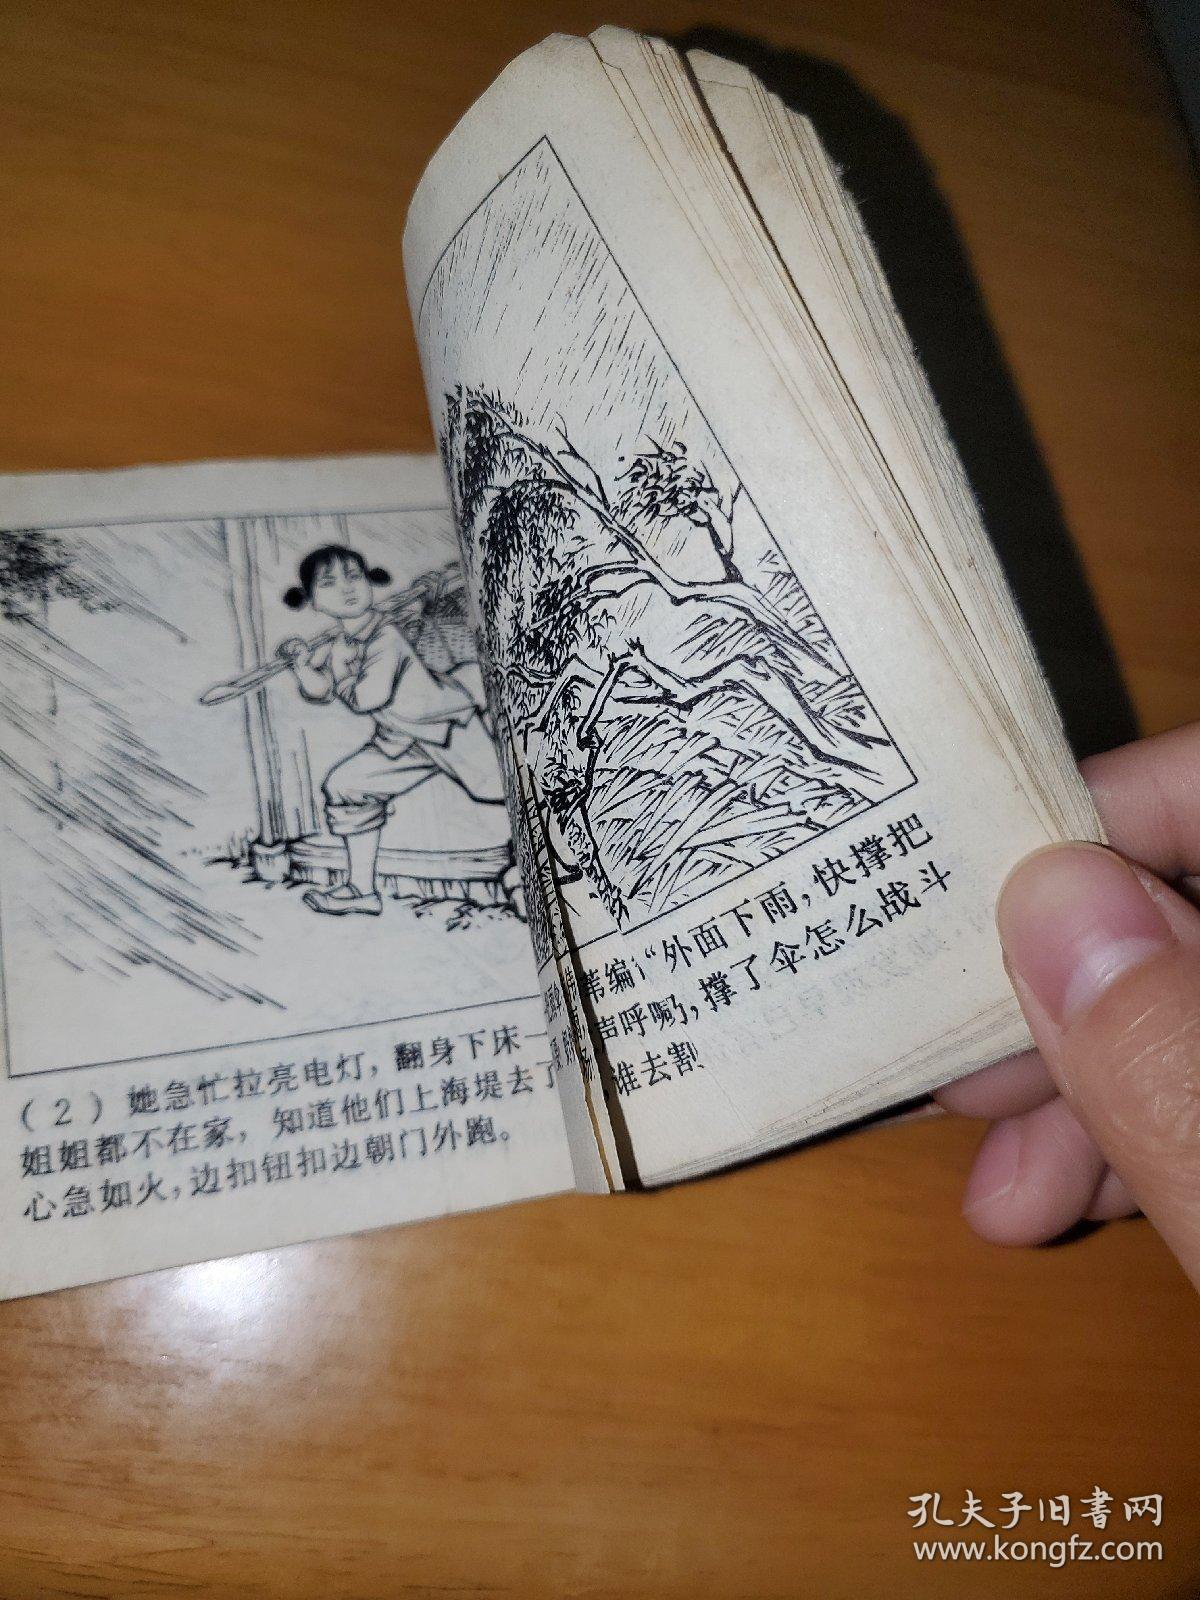 (2) 她急忙拉亮电灯，翻身下床一
姐姐都不在家，知道他们上海堤去了
心急如火，边扣钮扣边朝门外跑。
苇编
“外面下雨，快撑把
声呼
，撑了伞怎么战斗
谁去割
孔夫子旧书网
www.kongfz.com